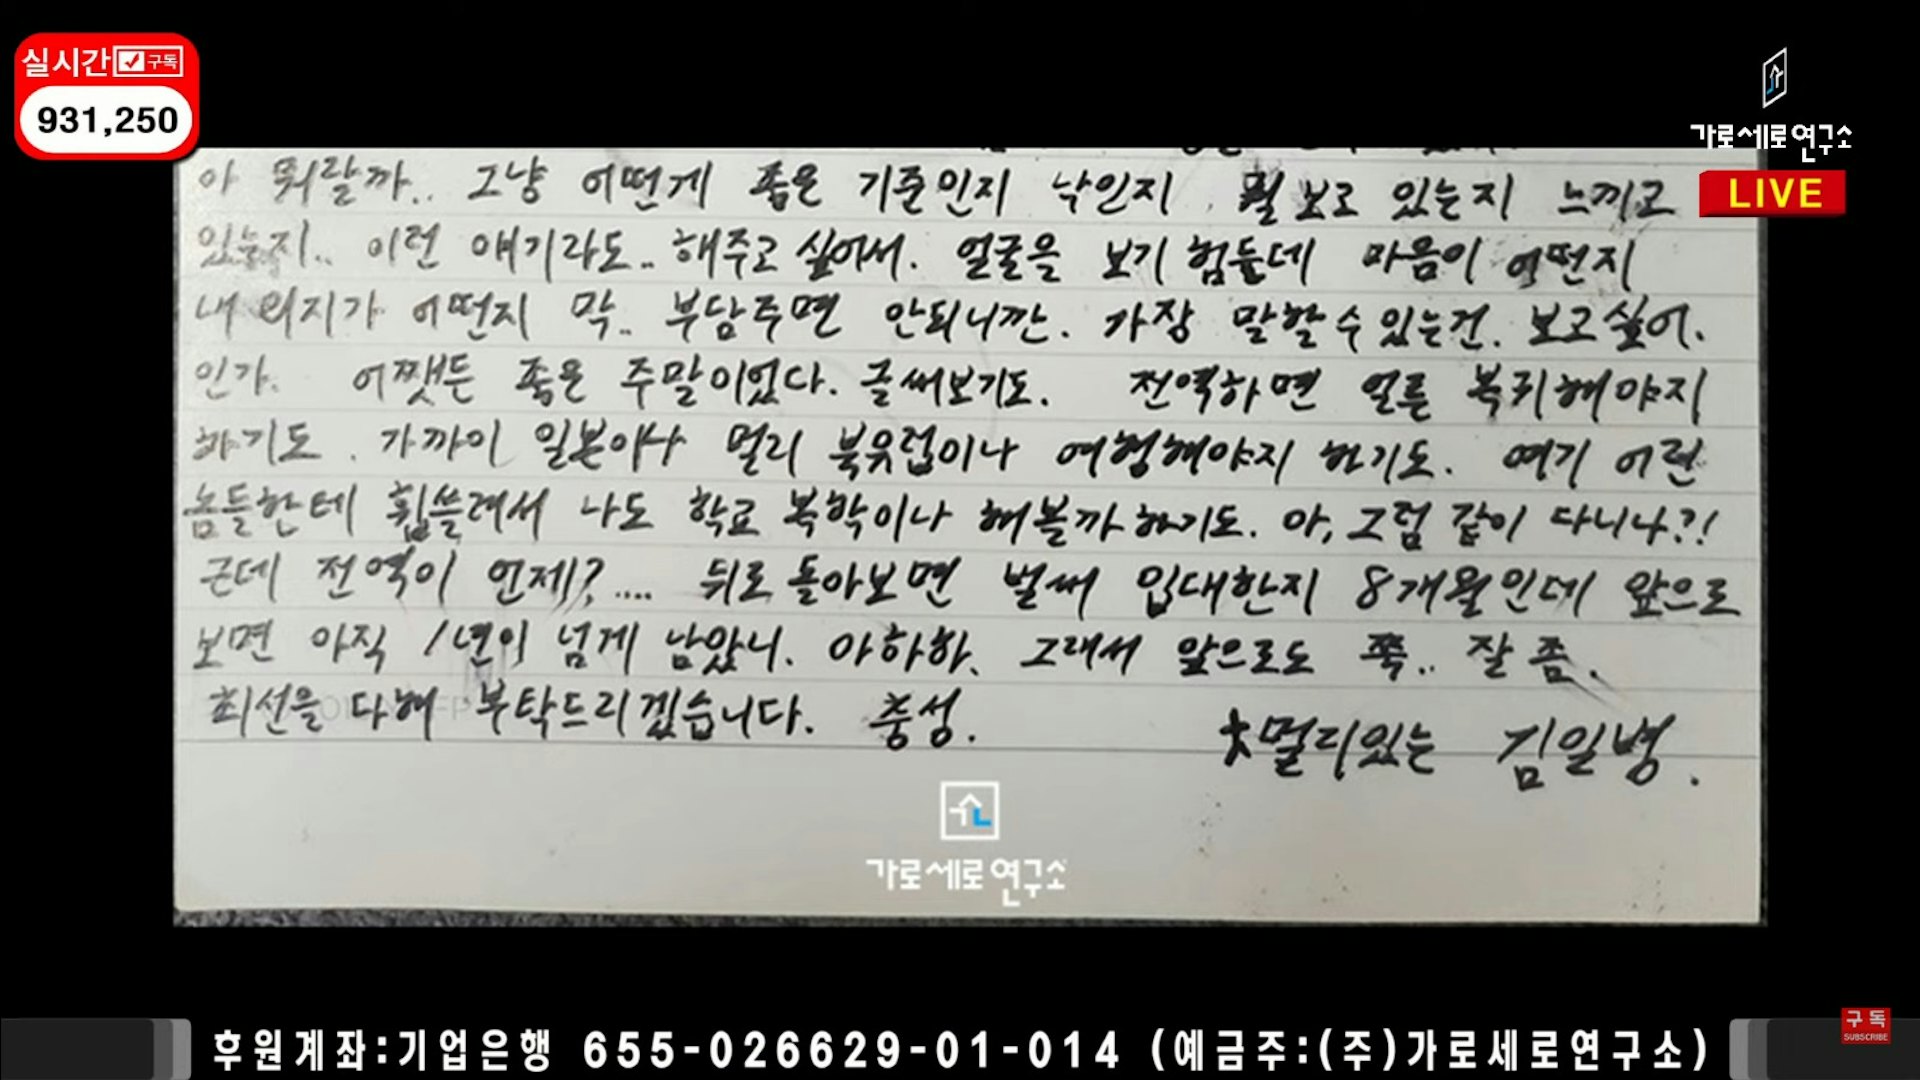 실시간 구독
931,250
가로세로연구소
LIVE
아 뭐랄까.. 그냥 어떤게 좋은 기준인지 낙인지 뭘 보고 있는지 느끼고
있는지.. 이런 얘기라도.. 해주고 싶어서. 얼굴을 보기 힘들데 마음이 어떤지
내 의지가 어떤지 막.. 부담주면 안되니깐. 가장 말할 수 있는건. 보고싶어.
인가. 어쨋든 좋은 주말이었다. 글써보기도. 전역하면 얼른 복귀해야지
하기도. 가까이 일본이나 멀리 북유럽이나 여행해야지 하기도. 여기 어린
놈들한테 휩쓸려서 나도 학교 복학이나 해볼까 하기도. 아, 그럼 같이 다니나?!
근데 전역이 언제?.... 뒤로 돌아보면 벌써 입대한지 8개월인데 앞으로
보면 아직 1년이 넘게 남았니. 아하하. 그래서 앞으로도 쭉.. 잘 좀.
최선을 다해 부탁드리겠습니다. 충성.
멀리있는 김일병.
가로세로연구소
후원계좌:기업은행 655-026629-01-014 (예금주:(주)가로세로연구소)
구독
SUBSCRIBE